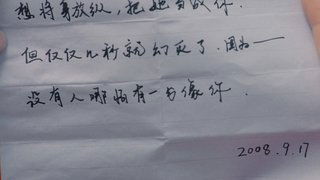 想将身放纵，把她当做你．
但仅仅几秒就幻灭了．因为——
没有人哪怕有一步像你．
2008.9.17